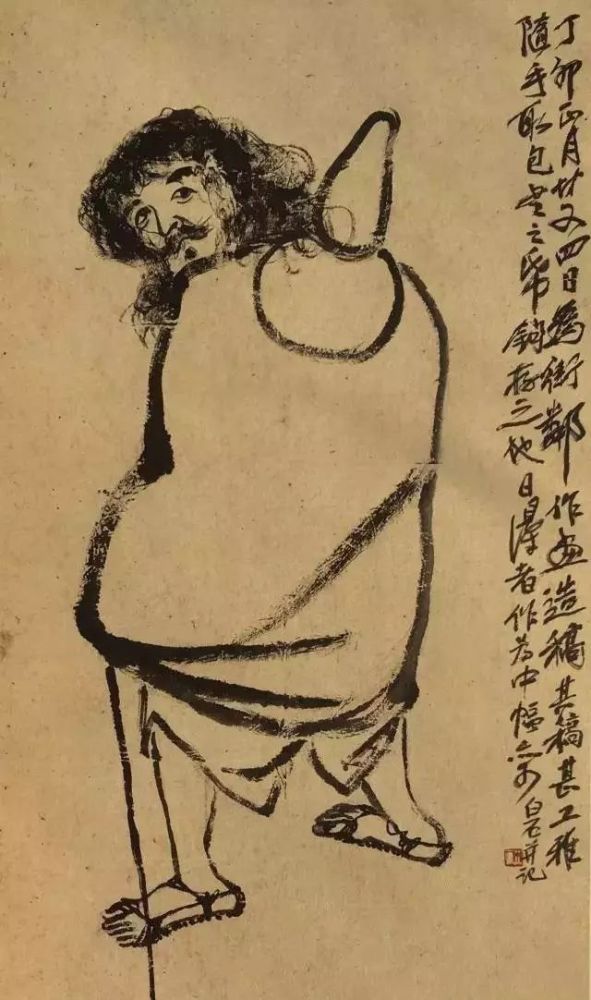 丁卯正月廿又四日為街鄰作画造稿其稿甚工雅
隨手取包書之帋鉤存之他日得者作為中幅亦可 白石并記